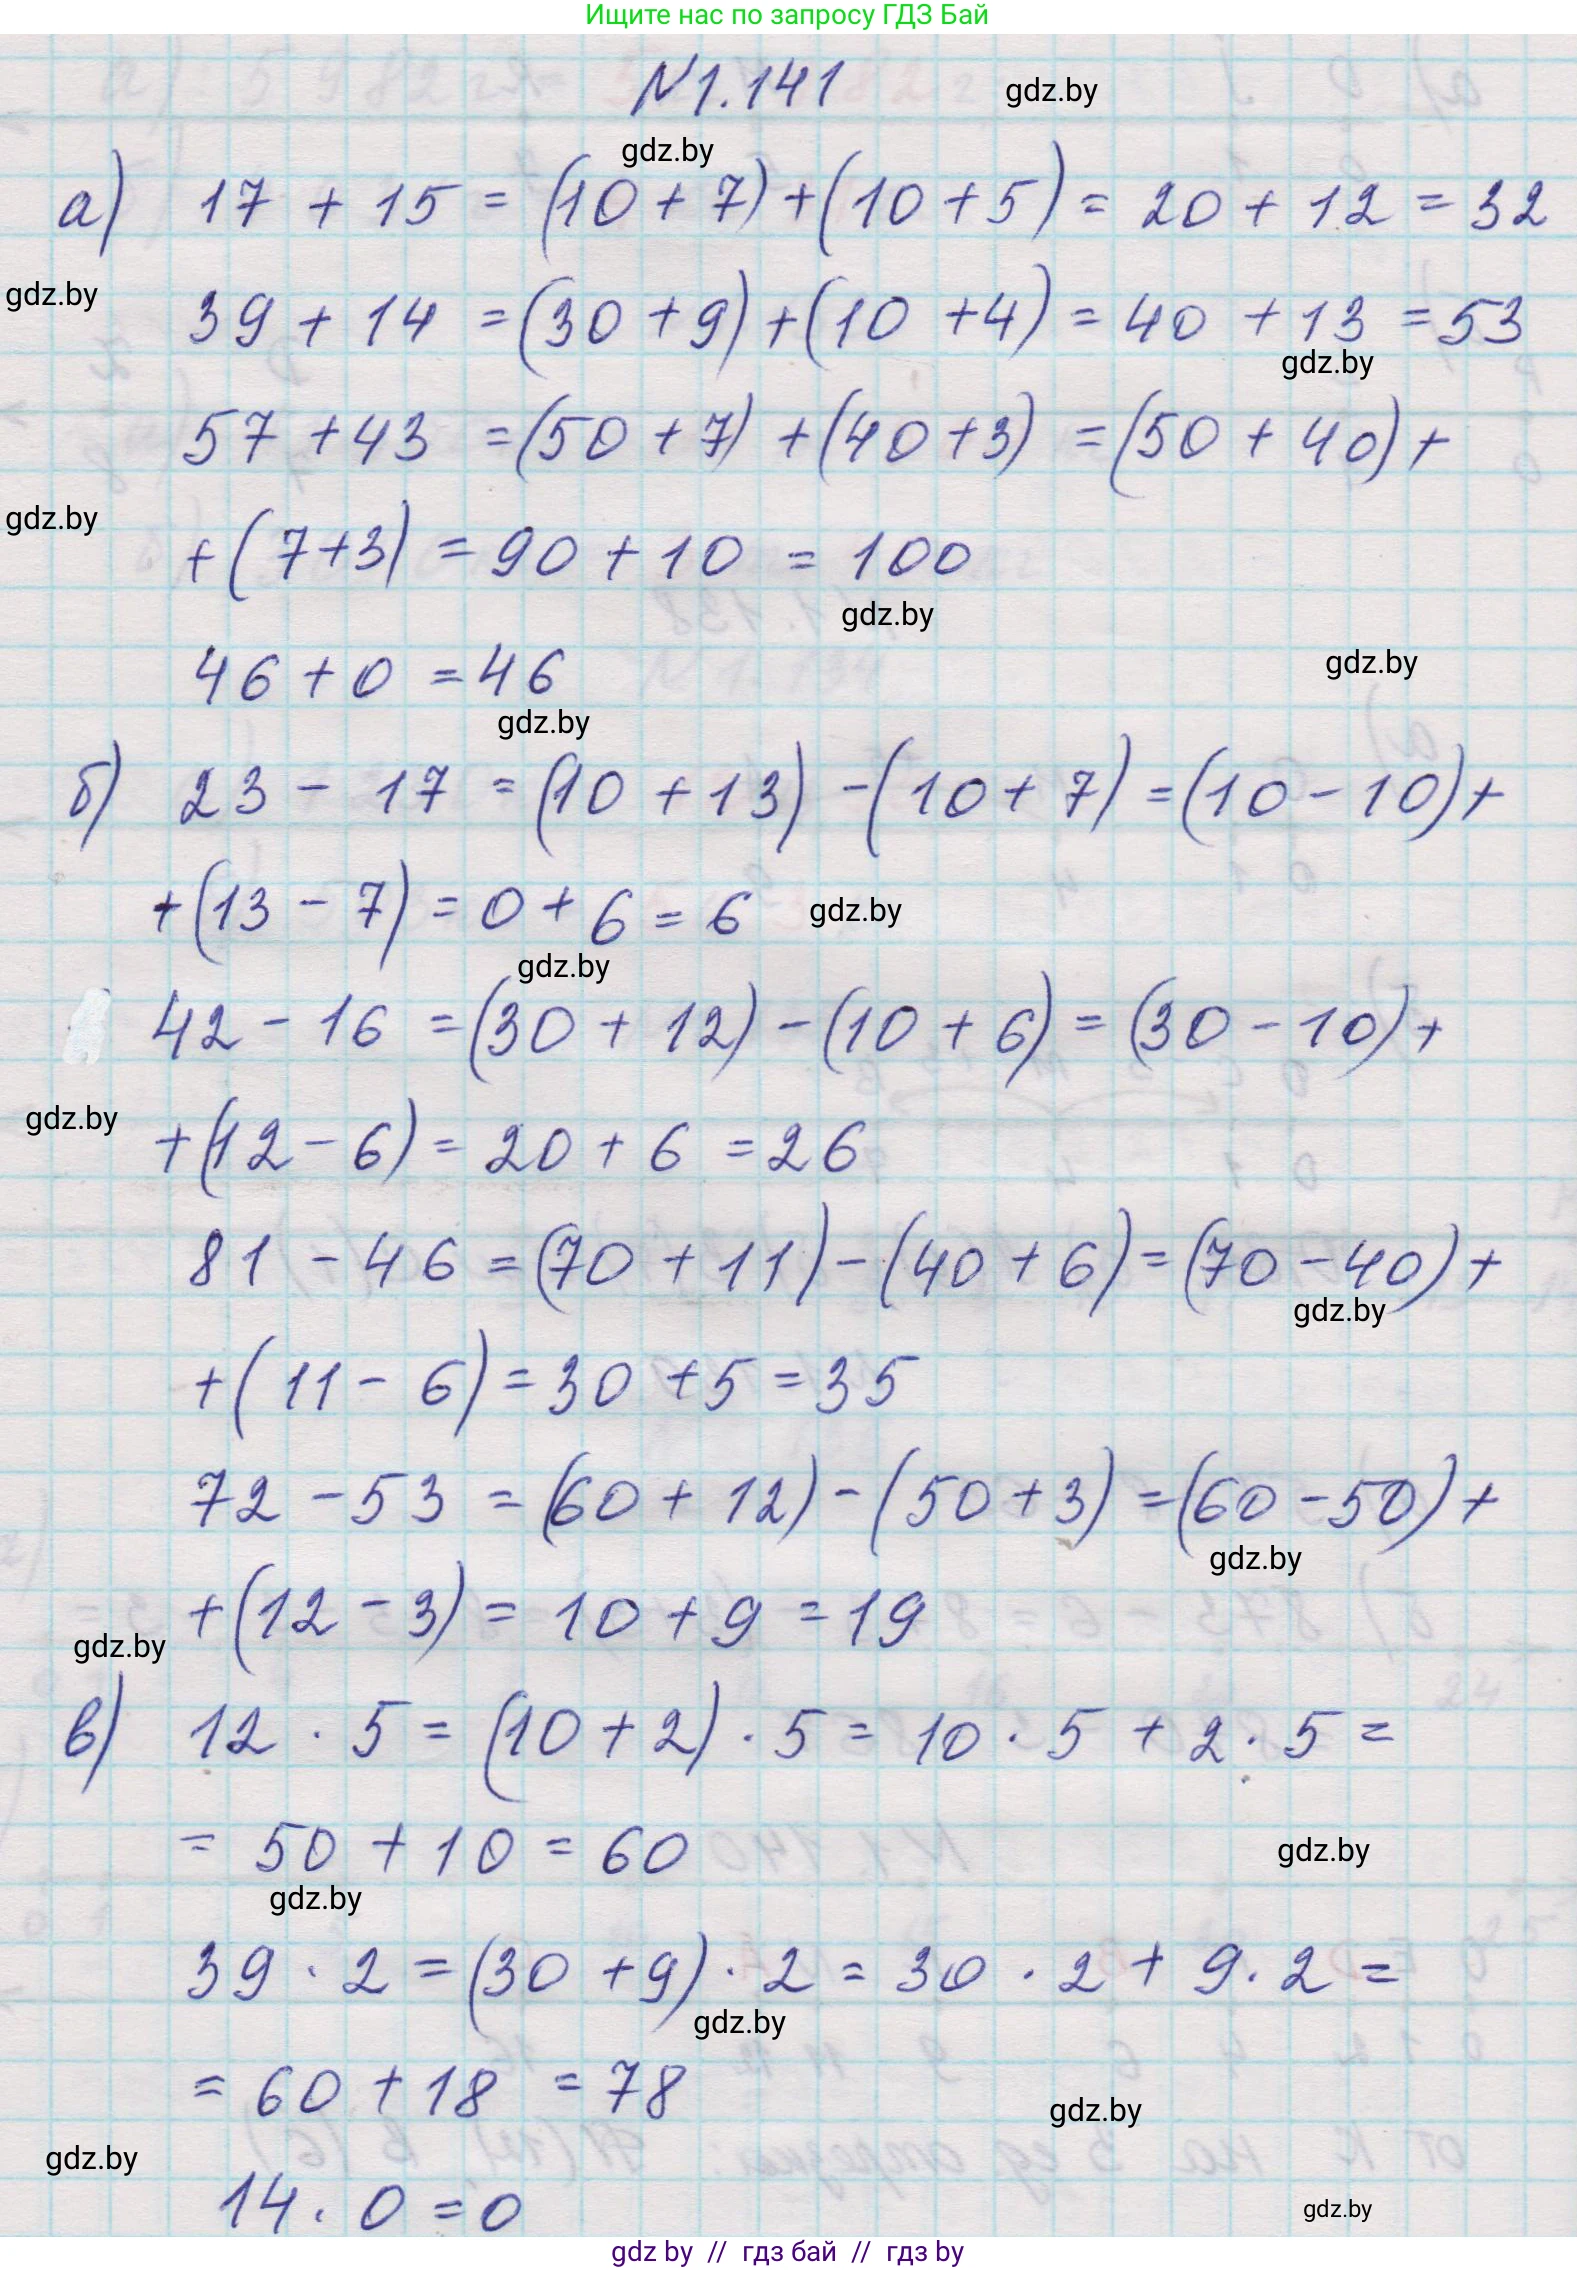 Ищите нас по запросу ГДЗ Бай
N1.141
gdz.by
gdz.by
а) 17 + 15 = (10 + 7) + (10 + 5) = 20 + 12 = 32
gdz.by
39 + 14 = (30 + 9) + (10 + 4) = 40 + 13 = 53
gdz.by
57 + 43 = (50 + 7) + (40 + 3) = (50 + 40) +
gdz.by
+ (7 + 3) = 90 + 10 = 100
gdz.by
46 + 0 = 46
gdz.by
gdz.by
б) 23 - 17 = (10 + 13) - (10 + 7) = (10 - 10) +
+ (13 - 7) = 0 + 6 = 6
gdz.by
gdz.by
42 - 16 = (30 + 12) - (10 + 6) = (30 - 10) +
gdz.by
+ (12 - 6) = 20 + 6 = 26
81 - 46 = (70 + 11) - (40 + 6) = (70 - 40) +
gdz.by
+ (11 - 6) = 30 + 5 = 35
72 - 53 = (60 + 12) - (50 + 3) = (60 - 50) +
gdz.by
+ (12 - 3) = 10 + 9 = 19
gdz.by
в) 12 · 5 = (10 + 2) · 5 = 10 · 5 + 2 · 5 =
= 50 + 10 = 60
gdz.by
gdz.by
39 · 2 = (30 + 9) · 2 = 30 · 2 + 9 · 2 =
gdz.by
= 60 + 18 = 78
gdz.by
gdz.by
14 · 0 = 0
gdz.by
gdz by // гдз бай // гдз by